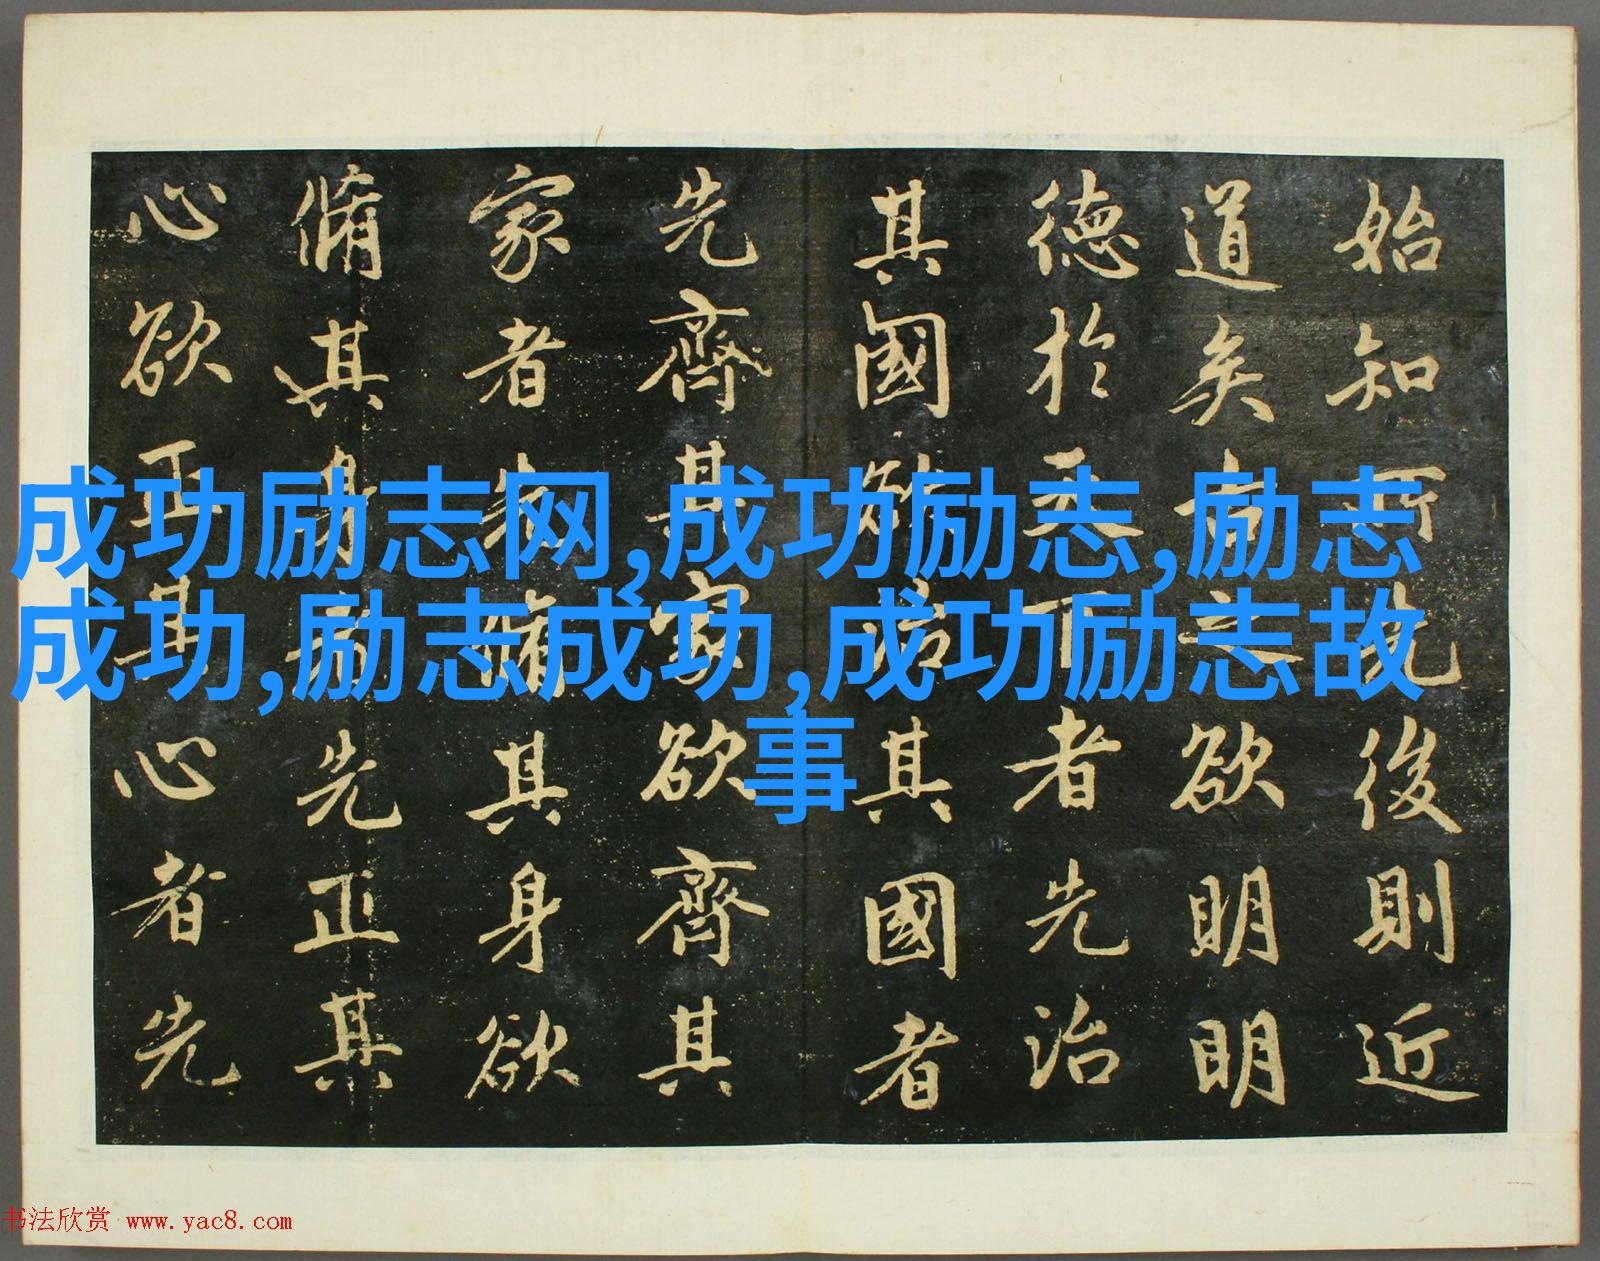 始知所先後則近
道矣古之欲明明
德於天下者先治
其國欲治其國者
先齊其家欲齊其
家者先脩其身欲
脩其身者先正其
心欲正其心者先
成功励志网,成功励志,励志
成功,励志成功,成功励志故
事
书法欣赏 www.yac8.com